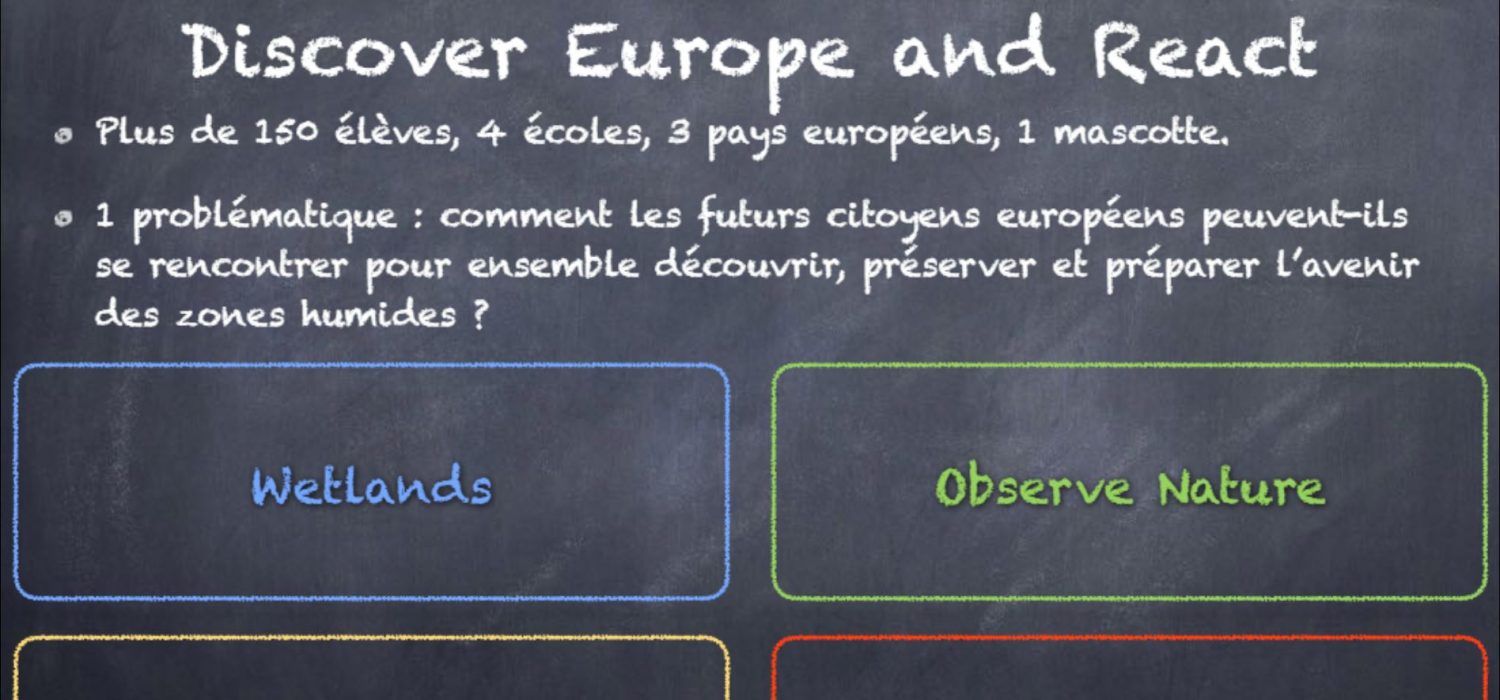 Discover Europe and React
Plus de 150 élèves, 4 écoles, 3 pays européens, 1 mascotte.
1 problématique : comment les futurs citoyens européens peuvent-ils
se rencontrer pour ensemble découvrir, préserver et préparer l'avenir
des zones humides ?
Wetlands
Observe Nature